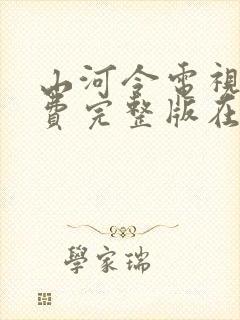 山河令電視
費完整版在
學家瑞